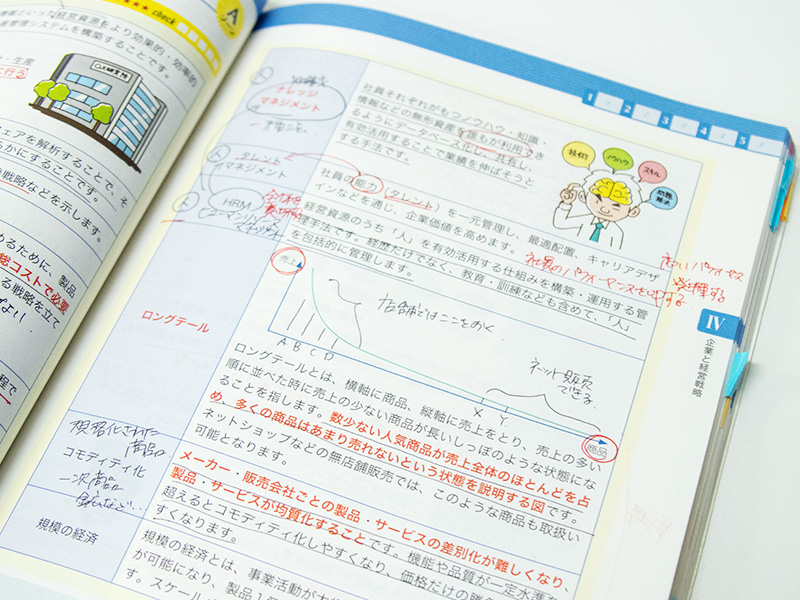 check
A
情報といった経営資源をより効果的・効率的
管理システムを構築することです。
・生産
行う
ェアを解析することで、そ
らかにすることです。
戦略などを示します。
めるために、製品
総コストで必要
る戦略を立て
程で
1
2
3
4
5
ナレッジ
マネジメント
社員それぞれがもつノウハウ・知識・
情報などの無形資産を誰もが利用でき
るようにデータベース化し、共有し、
有効活用することで業績を伸ばそうと
する手法です。
技術
ノウハウ
スキル
問題
解決
タレント
マネジメント
社員の能力(タレント)を一元管理し、最適配置、キャリアデザ
インなどを通じ、企業価値を高めます。
HRM
経営資源のうち「人」を有効活用する仕組みを構築・運用する管
理手法です。経歴だけでなく、教育・訓練なども含めて、「人」
を包括的に管理します。
社員のパフォーマンスを
発揮する
ロングテール
売上
店舗はここをおく
ネット販売
できる
A B C D
X Y
商品
ロングテールとは、横軸に商品、縦軸に売上をとり、売上の多い
順に並べた時に売上の少ない商品が長いしっぽのような状態にな
ることを指します。数少ない人気商品が売上全体のほとんどを占
め、多くの商品はあまり売れないという状態を説明する図です。
ネットショップなどの無店舗販売では、このような商品も取扱い
可能となります。
規格化された
商品の
コモディティ化
一次商品
メーカー・販売会社ごとの製品・サービスの差別化が難しくなり、
製品・サービスが均質化することです。機能や品質が一定水準を
超えるとコモディティ化しやすくなり、価格だけの競争
すくなります。
規模の経済
規模の経済とは、事業活動が大
が可能になり、製品1個
す。スケール
IV
企業と経営戦略